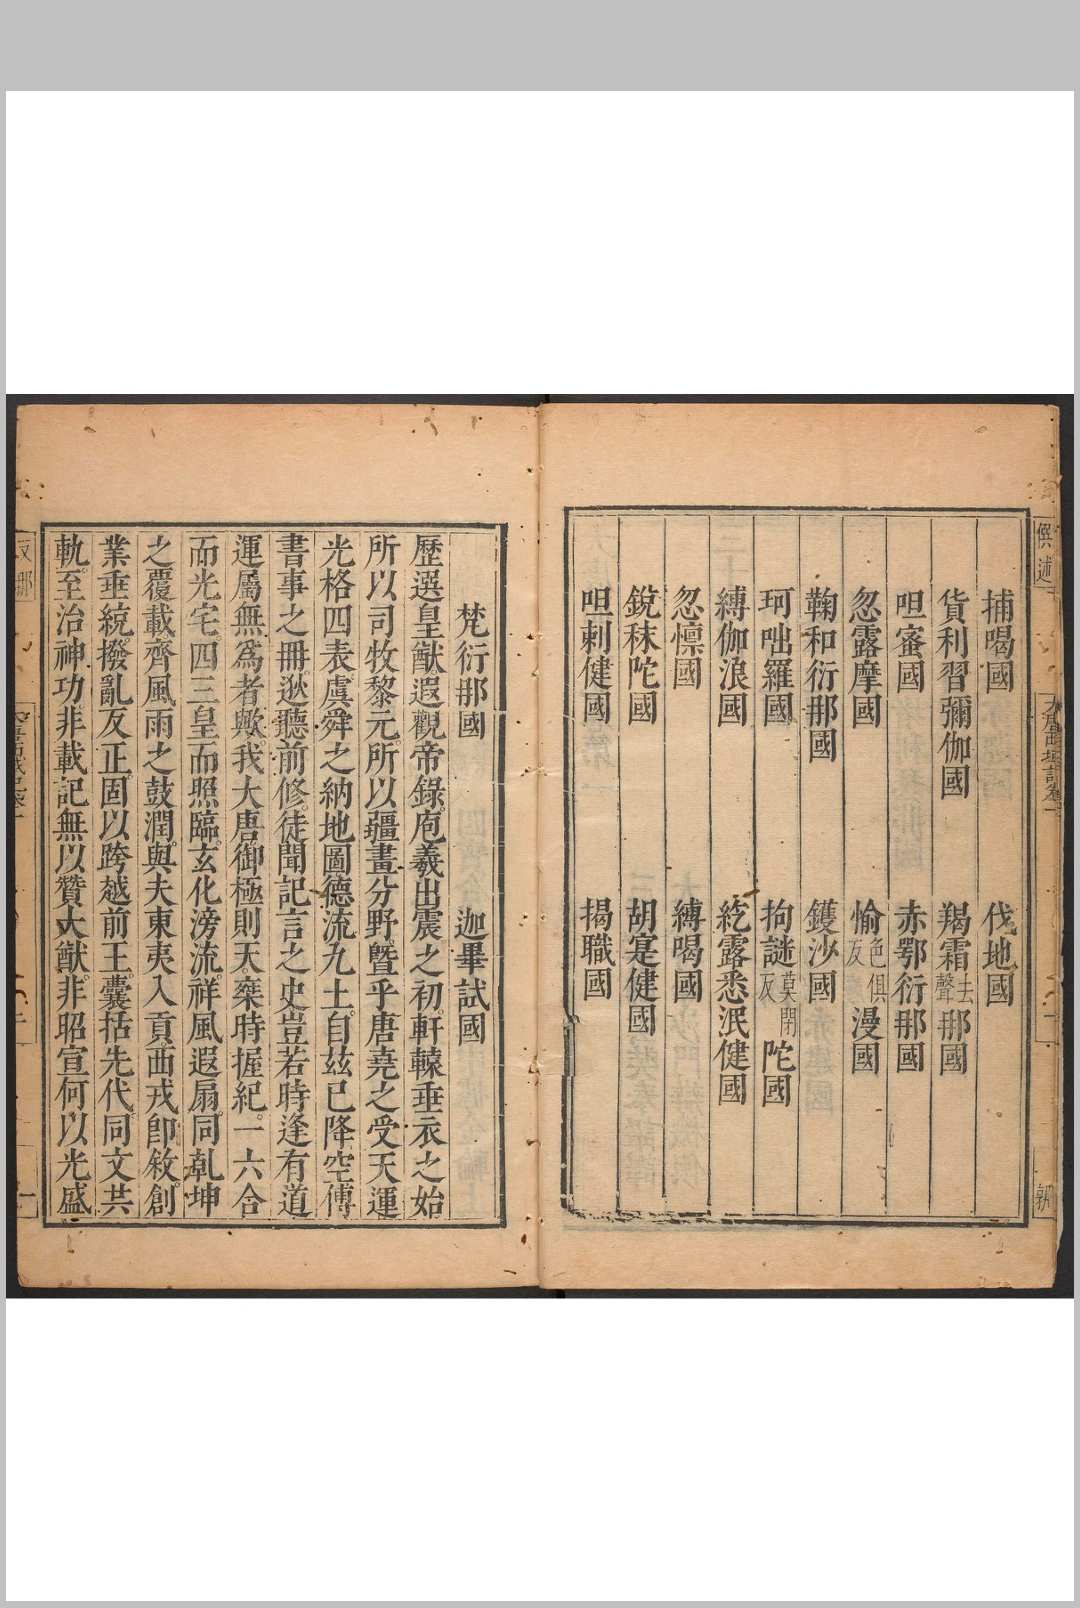 捕喝國　伐地國
貨利習彌伽國　羯霜去聲那國
呾蜜國　赤鄂衍那國
忽露摩國　愉色俱反漫國
鞠和衍那國　鑊沙國
珂咄羅國　拘謎莫閉反陀國
縛伽浪國　紇露悉泯健國
忽懍國　縛喝國
銳秣陀國　胡寔健國
呾剌健國　揭職國
梵衍那國　迦畢試國
歷選皇猷遐觀帝錄。庖羲出震之初。軒轅垂衣之始
所以司牧黎元。所以疆畫分野。曁乎唐堯之受天運
光格四表。虞舜之納地圖德流九土。自茲已降空傳
書事之冊。逖聽前修。徒聞記言之史豈若時逢有道
運屬無爲者歟。我大唐御極則天。乘時握紀。一六合
而光宅。四三皇而照臨。玄化滂流祥風遐扇。同乹坤
之覆載齊風雨之鼓潤。與夫東夷入貢。西戎卽敘。創
業垂統。撥亂反正。固以跨越前王。囊括先代。同文共
軌。至治神功。非載記無以贊大猷。非昭宣何以光盛